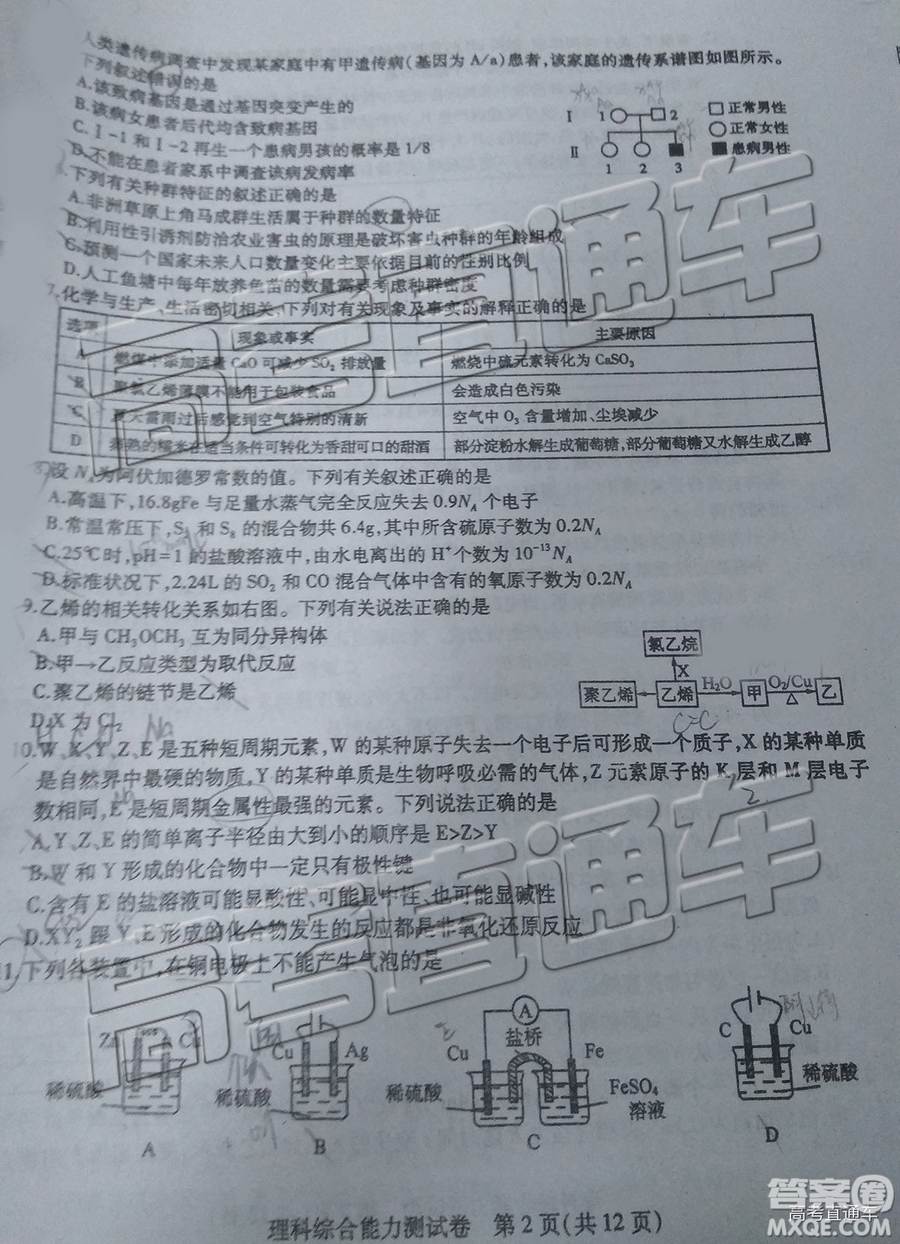 人类遗传病调查中发现某家庭中有甲遗传病(基因为A/a)患者,该家庭的遗传系谱图如图所示。
下列叙述错误的是
A.该致病基因是通过基因突变产生的
B.该病女患者后代均含致病基因
C.Ⅰ-1和Ⅰ-2再生一个患病男孩的概率是1/8
D.不能在患者家系中调查该病发病率
Ⅰ 1 2
Ⅱ
1 2 3
正常男性
正常女性
患病男性
下列有关种群特征的叙述正确的是
A.非洲草原上角马成群生活属于种群的数量特征
B.利用性引诱剂防治农业害虫的原理是破坏害虫种群的年龄组成
C.预测一个国家未来人口数量变化主要依据目前的性别比例
D.人工鱼塘中每年放养鱼苗的数量需要考虑种群密度
7.化学与生产、生活密切相关,下列对有关现象及事实的解释正确的是
选项 现象或事实 主要原因
A 燃煤中添加适量CaO可减少SO₂排放量 燃烧中硫元素转化为CaSO₃
B 聚氯乙烯薄膜不能用于包装食品 会造成白色污染
C 夏天雷雨过后感觉到空气特别的清新 空气中O₃含量增加、尘埃减少
D 蒸熟的糯米在适当条件可转化为香甜可口的甜酒 部分淀粉水解生成葡萄糖,部分葡萄糖又水解生成乙醇
8.设N_A为阿伏加德罗常数的值。下列有关叙述正确的是
A.高温下,16.8gFe与足量水蒸气完全反应失去0.9N_A个电子
B.常温常压下,S₄和S₈的混合物共6.4g,其中所含硫原子数为0.2N_A
C.25℃时,pH=1的盐酸溶液中,由水电离出的H⁺个数为10⁻¹³N_A
D.标准状况下,2.24L的SO₂和CO混合气体中含有的氧原子数为0.2N_A
9.乙烯的相关转化关系如右图。下列有关说法正确的是
A.甲与CH₃OCH₃互为同分异构体
B.甲→乙反应类型为取代反应
C.聚乙烯的链节是乙烯
D.X为Cl₂
氯乙烷
X
聚乙烯 乙烯 H₂O 甲 O₂/Cu △ 乙
10.W、X、Y、Z、E是五种短周期元素,W的某种原子失去一个电子后可形成一个质子,X的某种单质
是自然界中最硬的物质,Y的某种单质是生物呼吸必需的气体,Z元素原子的K层和M层电子
数相同,E是短周期金属性最强的元素。下列说法正确的是
A.Y、Z、E的简单离子半径由大到小的顺序是E>Z>Y
B.W和Y形成的化合物中一定只有极性键
C.含有E的盐溶液可能显酸性、可能显中性、也可能显碱性
D.XY₂跟Y、E形成的化合物发生的反应都是非氧化还原反应
11.下列各装置中,在铜电极上不能产生气泡的是
Zn Cu
稀硫酸
A
Cu Ag
稀硫酸
B
A
盐桥
Cu Fe
稀硫酸
FeSO₄
溶液
C
C Cu
稀硫酸
D
理科综合能力测试卷 第2页(共12页)
高考直通车
高考直通车
答案圈
高考直通车
MXQE.COM